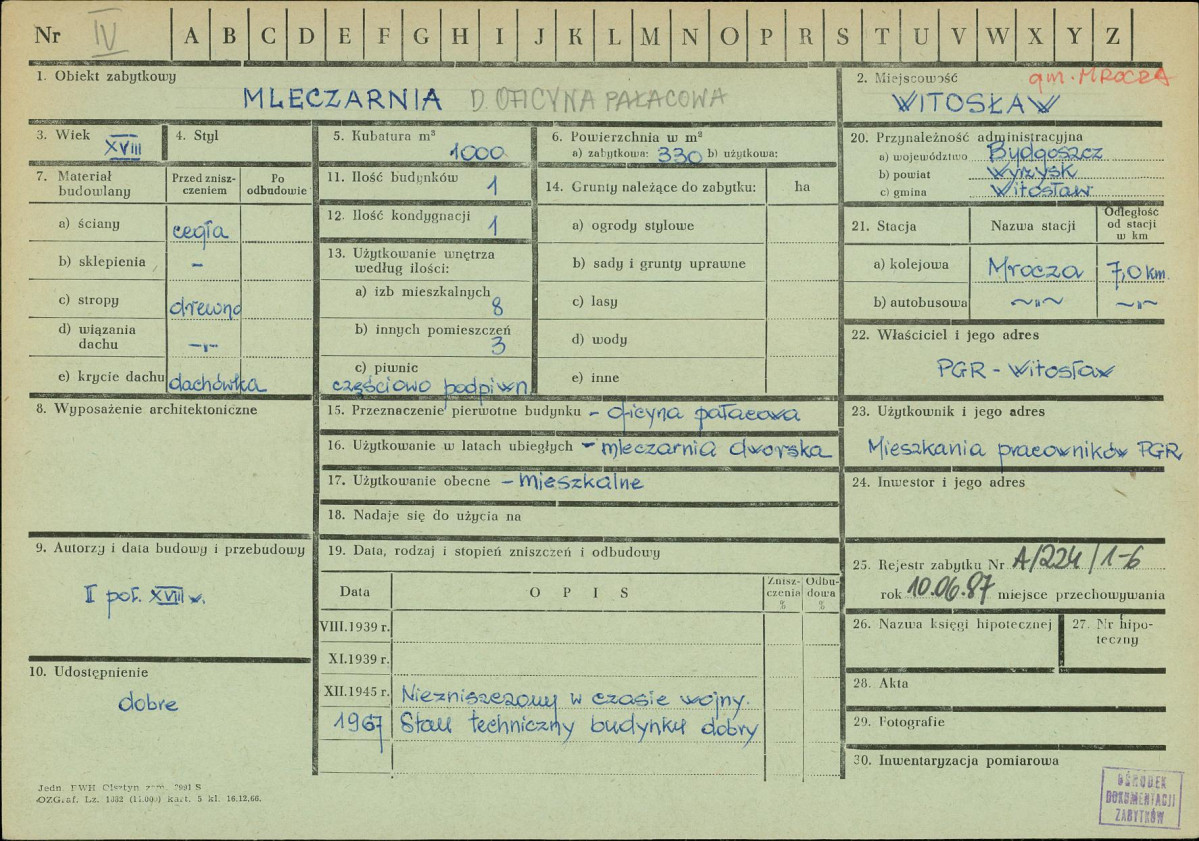 Nr IV A B C D E F G H I J K L M N O P R S T U V W X Y Z
1. Obiekt zabytkowy
MLECZARNIA D. OFICYNA PAŁACOWA
2. Miejscowość gm. MROCZA
WITOSŁAW
3. Wiek XVIII
4. Styl
5. Kubatura m³ 1000
6. Powierzchnia w m²
a) zabytkowa: 330 b) użytkowa:
7. Materiał budowlany
Przed znisz-
czeniem
Po
odbudowie
a) ściany cegła
b) sklepienia –
c) stropy drewno
d) wiązania
dachu –"–
e) krycie dachu dachówka
8. Wyposażenie architektoniczne
9. Autorzy i data budowy i przebudowy
II poł. XVIII w.
10. Udostępnienie
dobre
11. Ilość budynków 1
12. Ilość kondygnacji 1
13. Użytkowanie wnętrza
według ilości:
a) izb mieszkalnych 8
b) innych pomieszczeń 3
c) piwnic
częściowo podpiwn
14. Grunty należące do zabytku: ha
a) ogrody stylowe
b) sady i grunty uprawne
c) lasy
d) wody
e) inne
15. Przeznaczenie pierwotne budynku – oficyna pałacowa
16. Użytkowanie w latach ubiegłych – mleczarnia dworska
17. Użytkowanie obecne – mieszkalne
18. Nadaje się do użycia na
19. Data, rodzaj i stopień zniszczeń i odbudowy
Data O P I S
Znisz-
czenia
%
Odbu-
dowa
%
VIII.1939 r.
XI.1939 r.
XII.1945 r. Niezniszczony w czasie wojny.
1967 Stan techniczny budynku dobry
20. Przynależność administracyjna
a) województwo Bydgoszcz
b) powiat Wyrzysk
c) gmina Witosław
21. Stacja Nazwa stacji
Odległość
od stacji
w km
a) kolejowa Mrocza 7,0 km.
b) autobusowa ~"~ ~"~
22. Właściciel i jego adres
PGR – Witosław
23. Użytkownik i jego adres
Mieszkania pracowników PGR
24. Inwestor i jego adres
25. Rejestr zabytku Nr A/224/1-6
rok 10.06.87 miejsce przechowywania
26. Nazwa księgi hipotecznej
27. Nr hipo-
teczny
28. Akta
29. Fotografie
30. Inwentaryzacja pomiarowa
Jedn. PWH Olsztyn zam. 2991 S
OZGraf. Lz. 1332 (11.000) kart. 5 kl. 16.12.66.
OŚRODEK
DOKUMENTACJI
ZABYTKÓW